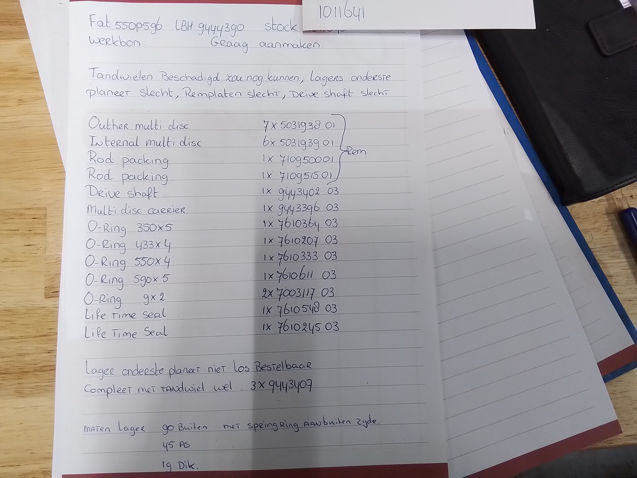 1011641
Fat 550P596 LBH 9444390 stock
werkbon Graag aanmaken
Tandwielen Beschadigd zou nog kunnen, Lagers onderste
planeet slecht, Remplaten slecht, Drive shaft slecht
Outher multi disc 7x 5031938 01
Internal multi disc 6x 5031939 01
Rod packing 1x 7109500 01
Rem
Rod packing 1x 7109515 01
Drive shaft 1x 9443402 03
Multi disc carrier 1x 9443396 03
O-Ring 350x5 1x 7610364 03
O-Ring 433x4 1x 7610207 03
O-Ring 550x4 1x 7610333 03
O-Ring 590x5 1x 7610611 03
O-Ring 9x2 2x 7003117 03
Life Time Seal 1x 7610548 03
Life Time Seal 1x 7610245 03
Lager onderste planeet niet los Bestelbaar
Compleet met TANDwiel wel 3x 9443407
maten Lager 90 Buiten met SpringRing AAN buiten zyde.
45 AS
19 Dik.